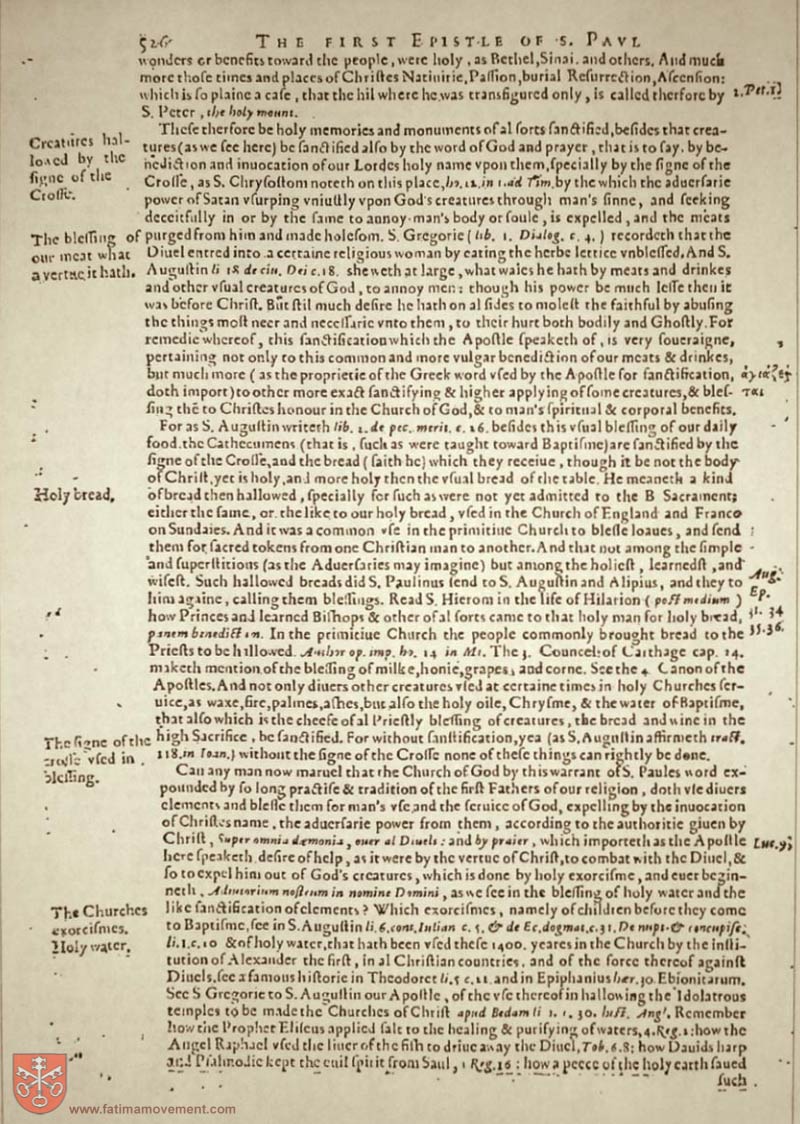 526 THE FIRST EPISTLE OF S. PAVL
wonders or benefits toward the people, were holy, as Bethel, Sinai, and others. And much
more those times and places of Christes Natiuitie, Passion, burial Resurrection, Ascension:
which is so plaine a case, that the hil where he was transfigured only, is called therfore by
S. Peter, the holy mount.
2. Pet. 1
These therfore be holy memories and monuments of al sorts sanctified, besides that crea-
tures (as we see here) be sanctified also by the word of God and prayer, that is to say. by be-
nediction and inuocation of our Lordes holy name vpon them, specially by the signe of the
Crosse, as S. Chrysostom noteth on this place, ho. 12. in 1. ad Tim. by the which the aduersarie
power of Satan vsurping vniustly vpon God's creatures through man's sinne, and seeking
deceitfully in or by the same to annoy man's body or soule, is expelled, and the meats
purged from him and made holesom. S. Gregorie (lib. 1. Dialog. c. 4.) recordeth that the
Diuel entred into a certaine religious woman by eating the herbe lettice vnblessed. And S.
Augustin li 18 de ciu. Dei c. 18. sheweth at large, what waies he hath by meats and drinkes
and other vsual creatures of God, to annoy men: though his power be much lesse then it
was before Christ. But stil much desire he hath on al sides to molest the faithful by abusing
the things most neer and necessarie vnto them, to their hurt both bodily and Ghostly. For
remedie whereof, this sanctification which the Apostle speaketh of, is very soueraigne,
pertaining not only to this common and more vulgar benediction of our meats & drinkes,
but much more (as the proprietie of the Greek word vsed by the Apostle for sanctification,
doth import) to other more exact sanctifying & higher applying of some creatures, & bles-
sing thē to Christes honour in the Church of God, & to man's spiritual & corporal benefits.
Creatures hal-
lowed by the
signe of the
Crosse.
The blessing of
our meat what
a vertue it hath.
ἁγιάζε
ται
For as S. Augustin writeth lib. 2. de pec. merit. c. 26. besides this vsual blessing of our daily
food. the Cathecumens (that is, such as were taught toward Baptisme) are sanctified by the
signe of the Crosse, and the bread (saith he) which they receiue, though it be not the body
of Christ, yet is holy, and more holy then the vsual bread of the table. He meaneth a kind
of bread then hallowed, specially for such as were not yet admitted to the B Sacrament;
either the same, or the like to our holy bread, vsed in the Church of England and France
on Sundaies. And it was a common vse in the primitiue Church to blesse loaues, and send
them for sacred tokens from one Christian man to another. And that not among the simple
and superstitious (as the Aduersaries may imagine) but among the holiest, learnedst, and
wisest. Such hallowed breads did S. Paulinus send to S. Augustin and Alipius, and they to
him againe, calling them blessings. Read S. Hierom in the life of Hilarion (post medium)
how Princes and learned Bishops & other of al sorts came to that holy man for holy bread,
panem benedictum. In the primitiue Church the people commonly brought bread to the
Priests to be hallowed. Author op. imp. ho. 14 in Mt. The 3. Councel of Carthage cap. 24.
maketh mention of the blessing of milke, honie, grapes, and corne. See the 4 Canon of the
Apostles. And not only diuers other creatures vsed at certaine times in holy Churches ser-
uice, as waxe, fire, palmes, ashes, but also the holy oile, Chrysme, & the water of Baptisme,
that also which is the cheefe of al Priestly blessing of creatures, the bread and wine in the
high Sacrifice, be sanctified. For without sanctification, yea (as S. Augustin affirmeth tract.
118. in Ioan.) without the signe of the Crosse none of these things can rightly be done.
Holy bread.
Aug.
Ep.
31. 34
35. 36.
The signe of the
crosse vsed in
blessing.
Can any man now maruel that the Church of God by this warrant of S. Paules word ex-
pounded by so long practise & tradition of the first Fathers of our religion, doth vse diuers
elements and blesse them for man's vse and the seruice of God, expelling by the inuocation
of Christes name, the aduersarie power from them, according to the authoritie giuen by
Christ, Super omnia dæmonia, ouer al Diuels: and by praier, which importeth as the Apostle
here speaketh desire of help, as it were by the vertue of Christ, to combat with the Diuel, &
so to expel him out of God's creatures, which is done by holy exorcisme, and euer begin-
neth, Adiutorium nostrum in nomine Domini, as we see in the blessing of holy water and the
like sanctification of elements? Which exorcismes, namely of children before they come
to Baptisme, see in S. Augustin li. 6. cont. Iulian c. 5. & de Ec. dogmat. c. 31. De nupt. & concupisc.
li. 2. c. 20 & of holy water, that hath been vsed these 1400. yeares in the Church by the insti-
tution of Alexander the first, in al Christian countries, and of the force thereof against
Diuels, see a famous historie in Theodoret li. 5 c. 21 and in Epiphanius hær. 30 Ebionitarum.
See S Gregorie to S. Augustin our Apostle, of the vse thereof in hallowing the Idolatrous
temples to be made the Churches of Christ apud Bedam li 1. c. 30. hist. Angl. Remember
how the Prophet Eliseus applied salt to the healing & purifying of waters, 4. Reg. 2; how the
Angel Raphael vsed the liuer of the fish to driue away the Diuel, Tob. 6. 8; how Dauids harp
and Psalmodie kept the euil spirit from Saul, 1 Reg. 16; how a peece of the holy earth saued
such
Luc. 9;
The Churches
exorcismes.
Holy water.
www.fatimamovement.com